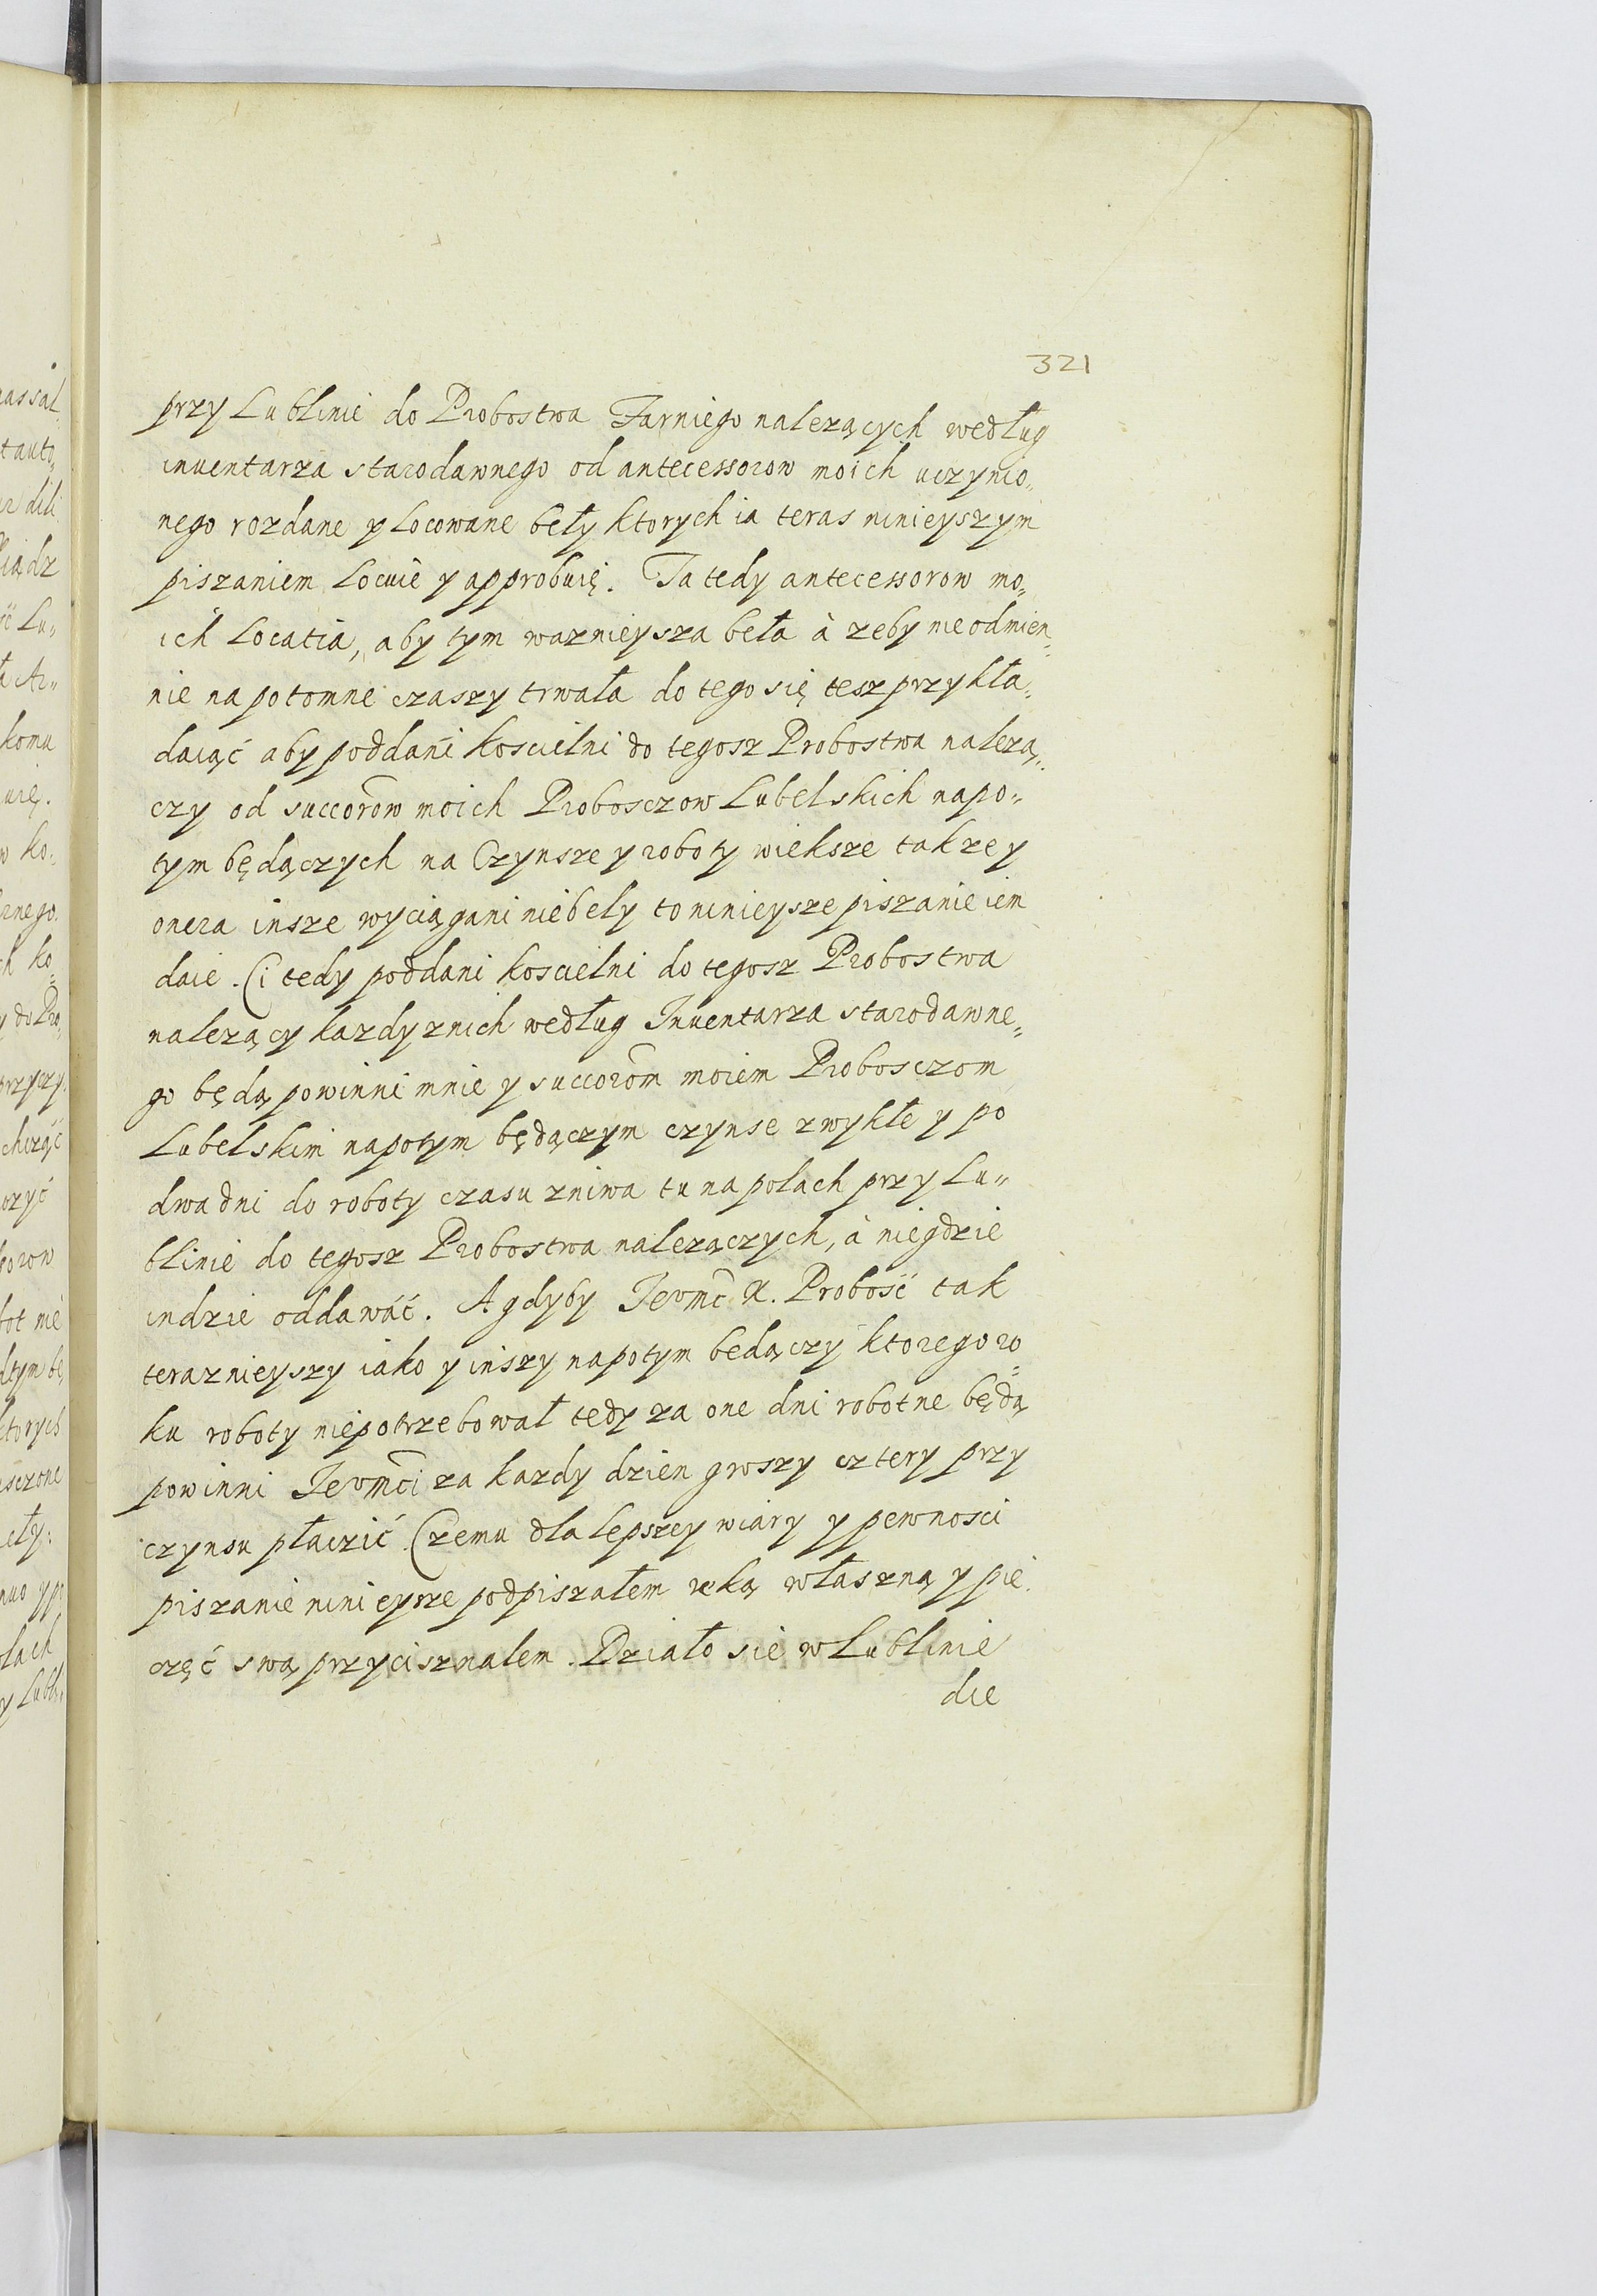 321
przy Lublinie do Probostwa Farniego nalezących według
inuentarza starodawnego od antecessorow moich uczynio„
nego rozdane y locowane beły ktorych ia teras ninieyszym
piszaniem locuie y approbuię. Ta tedy antecessorow mo„
ich Locatia, aby tym waznieysza beła à zeby nieodmien„
nie napotomne czaszy trwała do tego się tesz przykła„
daiąć aby poddani koscielni do tegosz Probostwa nalezą„
czy od succorow moich Proboszczow Lubelskich napo„
tym będączych na Czynsze y roboty wieksze takze y
onera insze wyciągani niebely to ninieysze piszanie iem
daie. Ci tedy poddani koscielni do tegosz Probostwa
nalezący kazdy znich według Inuentarza starodawne„
go będą powinni mnie y succorom moiem Probosczom
Lubelskim napotym będączym czynse zwykłe y po
dwa dni do roboty czasu zniwa tu na polach przy Lu„
blinie do tegosz Probostwa nalezączych, à niegdzie
indzie oddawáć. A gdyby Jeomć X. Probość tak
teraznieyszy iako y inszy napotym bedączy ktorego ro„
ku roboty niepotrzebował tedy za one dni robotne będą
powinni Jeomći za kazdy dzien groszy cztery przy
czynsu płaczić. Czemu dla lepszey wiary y pewnosci
piszanie ninieysze podpiszałem ręką właszną y pie„
częć swą przycisznałem. Działo sie w Lublinie
die